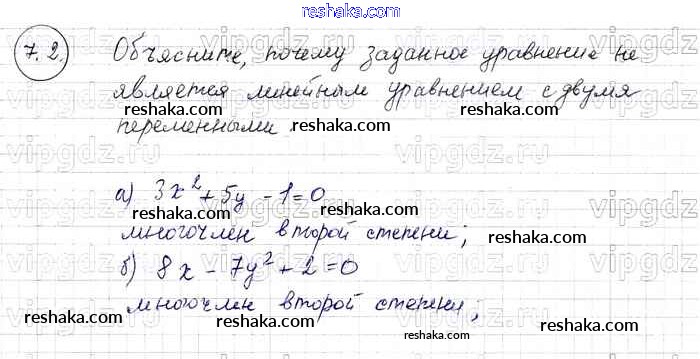 reshaka.com
7.2. Объясните, почему заданное уравнение не
является линейным уравнением с двумя
reshaka.com reshaka.com
переменными.
reshaka.com
vipgdz.ru vipgdz.ru vipgdz.ru vipgdz.ru
а) 3x² + 5y - 1 = 0
reshaka.com reshaka.com
многочлен второй степени;
reshaka.com
б) 8x - 7y² + 2 = 0
reshaka.com
многочлен второй степени;
reshaka.com reshaka.com
reshaka.com